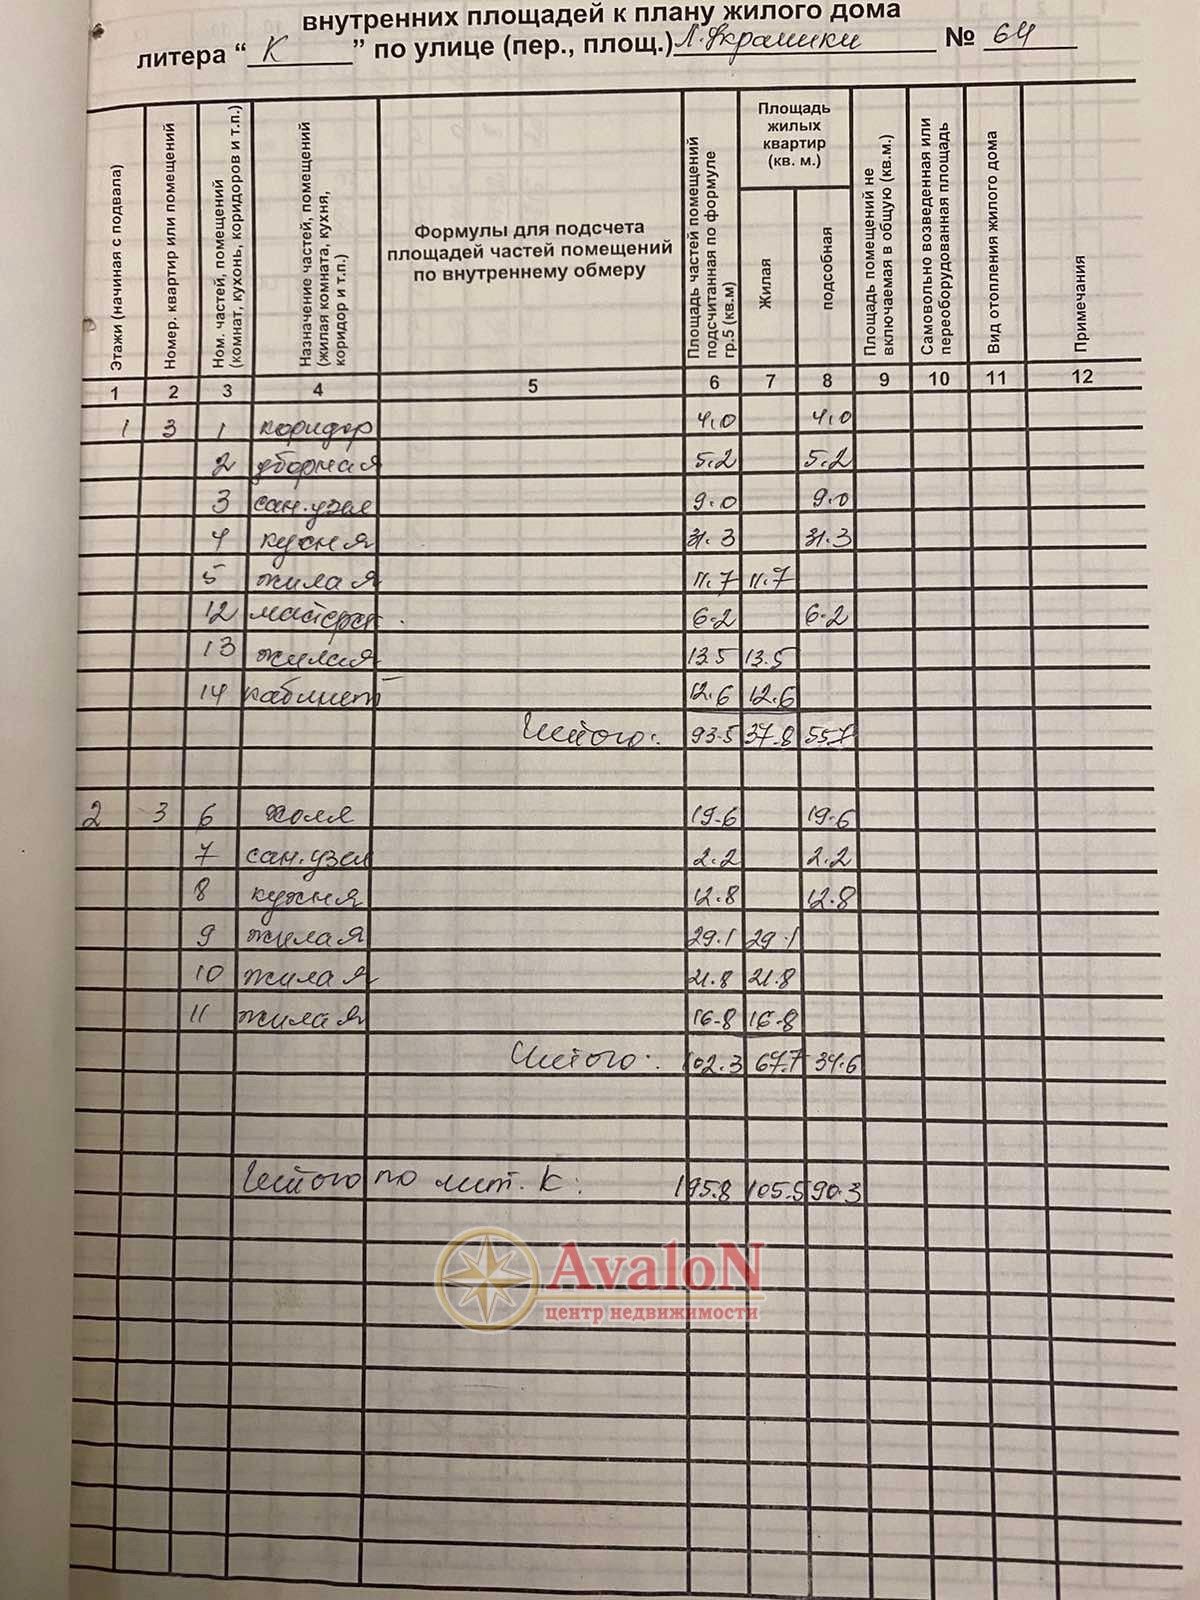 внутренних площадей к плану жилого дома
литера “ К ” по улице (пер., площ.) Л.Украинки № 64
Этажи (начиная с подвала)
Номер. квартир или помещений
Ном. частей, помещений (комнат, кухонь, коридоров и т.п.)
Назначение частей, помещений (жилая комната, кухня, коридор и т.п.)
Формулы для подсчета площадей частей помещений по внутреннему обмеру
Площадь частей помещений подсчитанная по формуле гр.5 (кв.м)
Площадь жилых квартир (кв. м.)
Жилая
подсобная
Площадь помещений не включаемая в общую (кв.м.)
Самовольно возведенная или переоборудованная площадь
Вид отопления жилого дома
Примечания
1 2 3 4 5 6 7 8 9 10 11 12
1 3 1 коридор 4.0 4.0
2 уборная 5.2 5.2
3 сан.узел 9.0 9.0
4 кухня 31.3 31.3
5 жилая 11.7 11.7
12 мастерск. 6.2 6.2
13 жилая 13.5 13.5
14 кабинет 12.6 12.6
Итого: 93.5 37.8 55.7
2 3 6 холл 19.6 19.6
7 сан.узел 2.2 2.2
8 кухня 12.8 12.8
9 жилая 29.1 29.1
10 жилая 21.8 21.8
11 жилая 16.8 16.8
Итого: 102.3 67.7 34.6
Итого по лит. К: 195.8 105.5 90.3
AvaloN
центр недвижимости